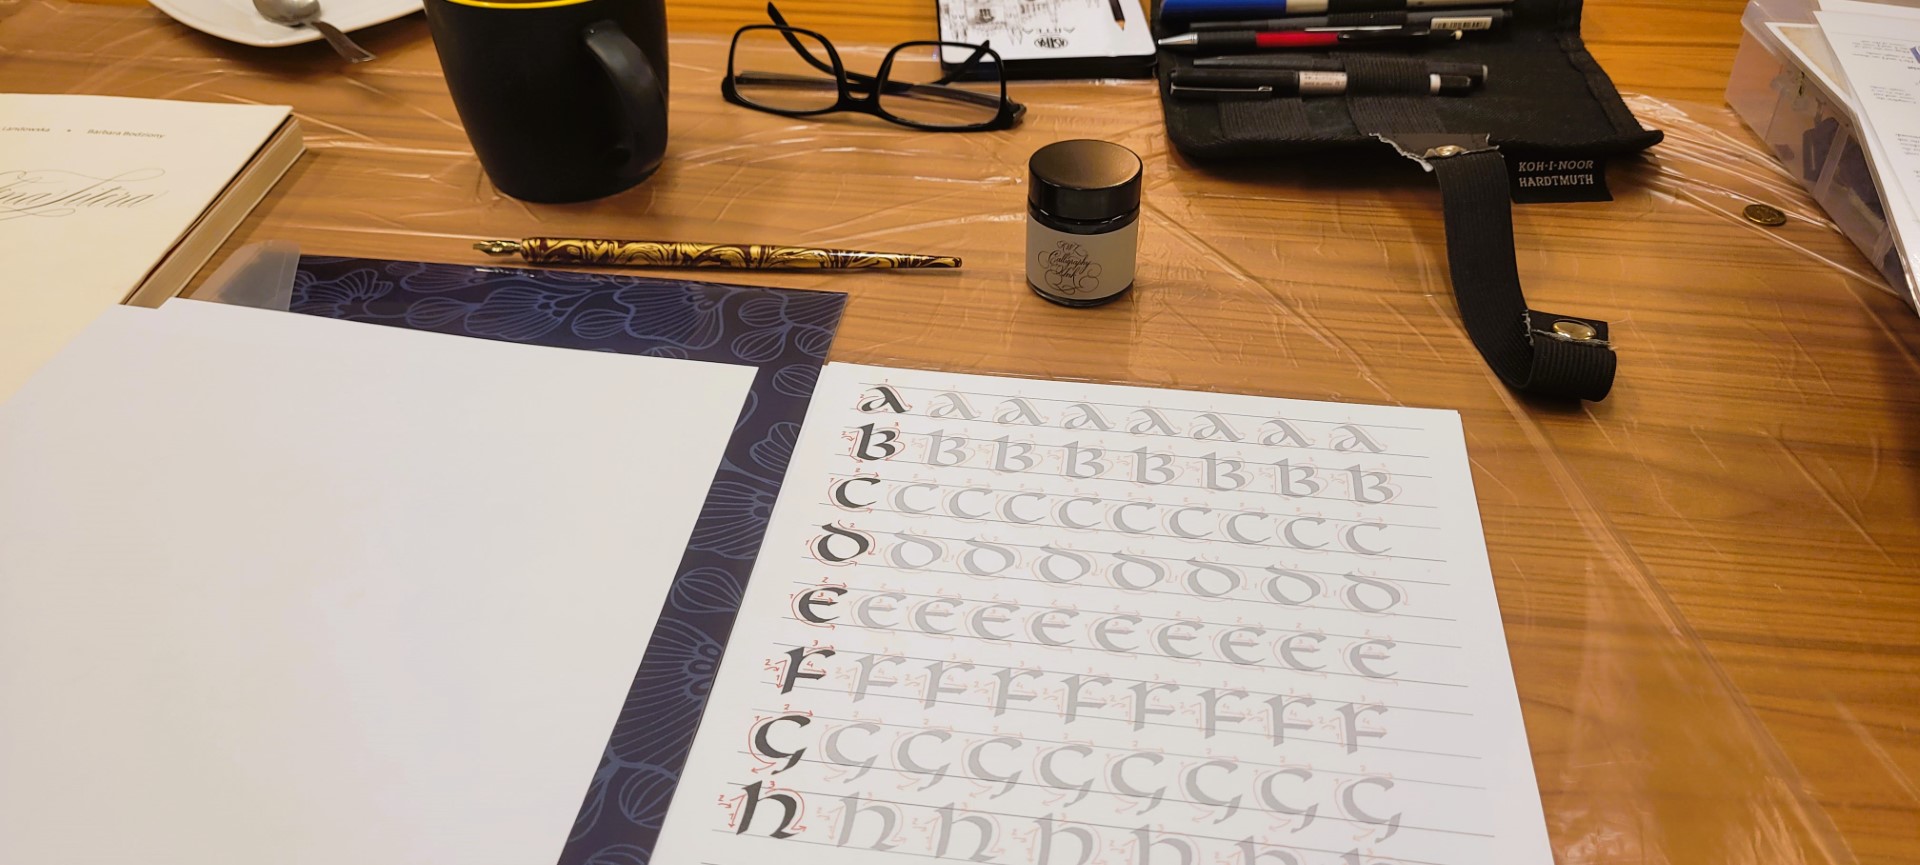 Landowska • Barbara Bodziony
Litera
KOH-I-NOOR
HARDTMUTH
Calligraphy
Ink
a a a a a a a a
B B B B B B B B
C C C C C C C C C C
D D D D D D D D
E E E E E E E E E E
F F F F F F F F F
G G G G G G G G G
h h h h h h h